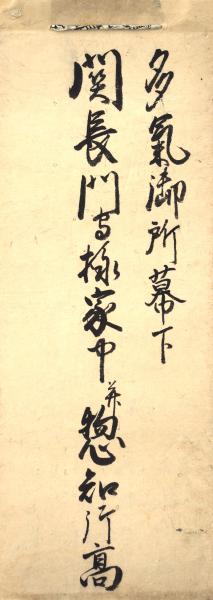 多氣御所幕下
関長門守様家中并惣知行高